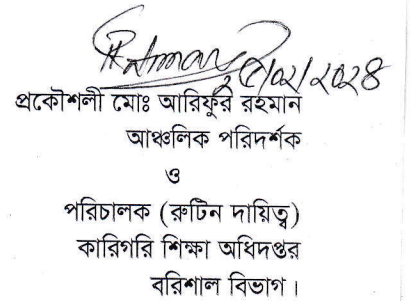 প্রকৌশলী মোঃ আরিফুর রহমান
আঞ্চলিক পরিদর্শক
ও
পরিচালক (রুটিন দায়িত্ব)
কারিগরি শিক্ষা অধিদপ্তর
বরিশাল বিভাগ।